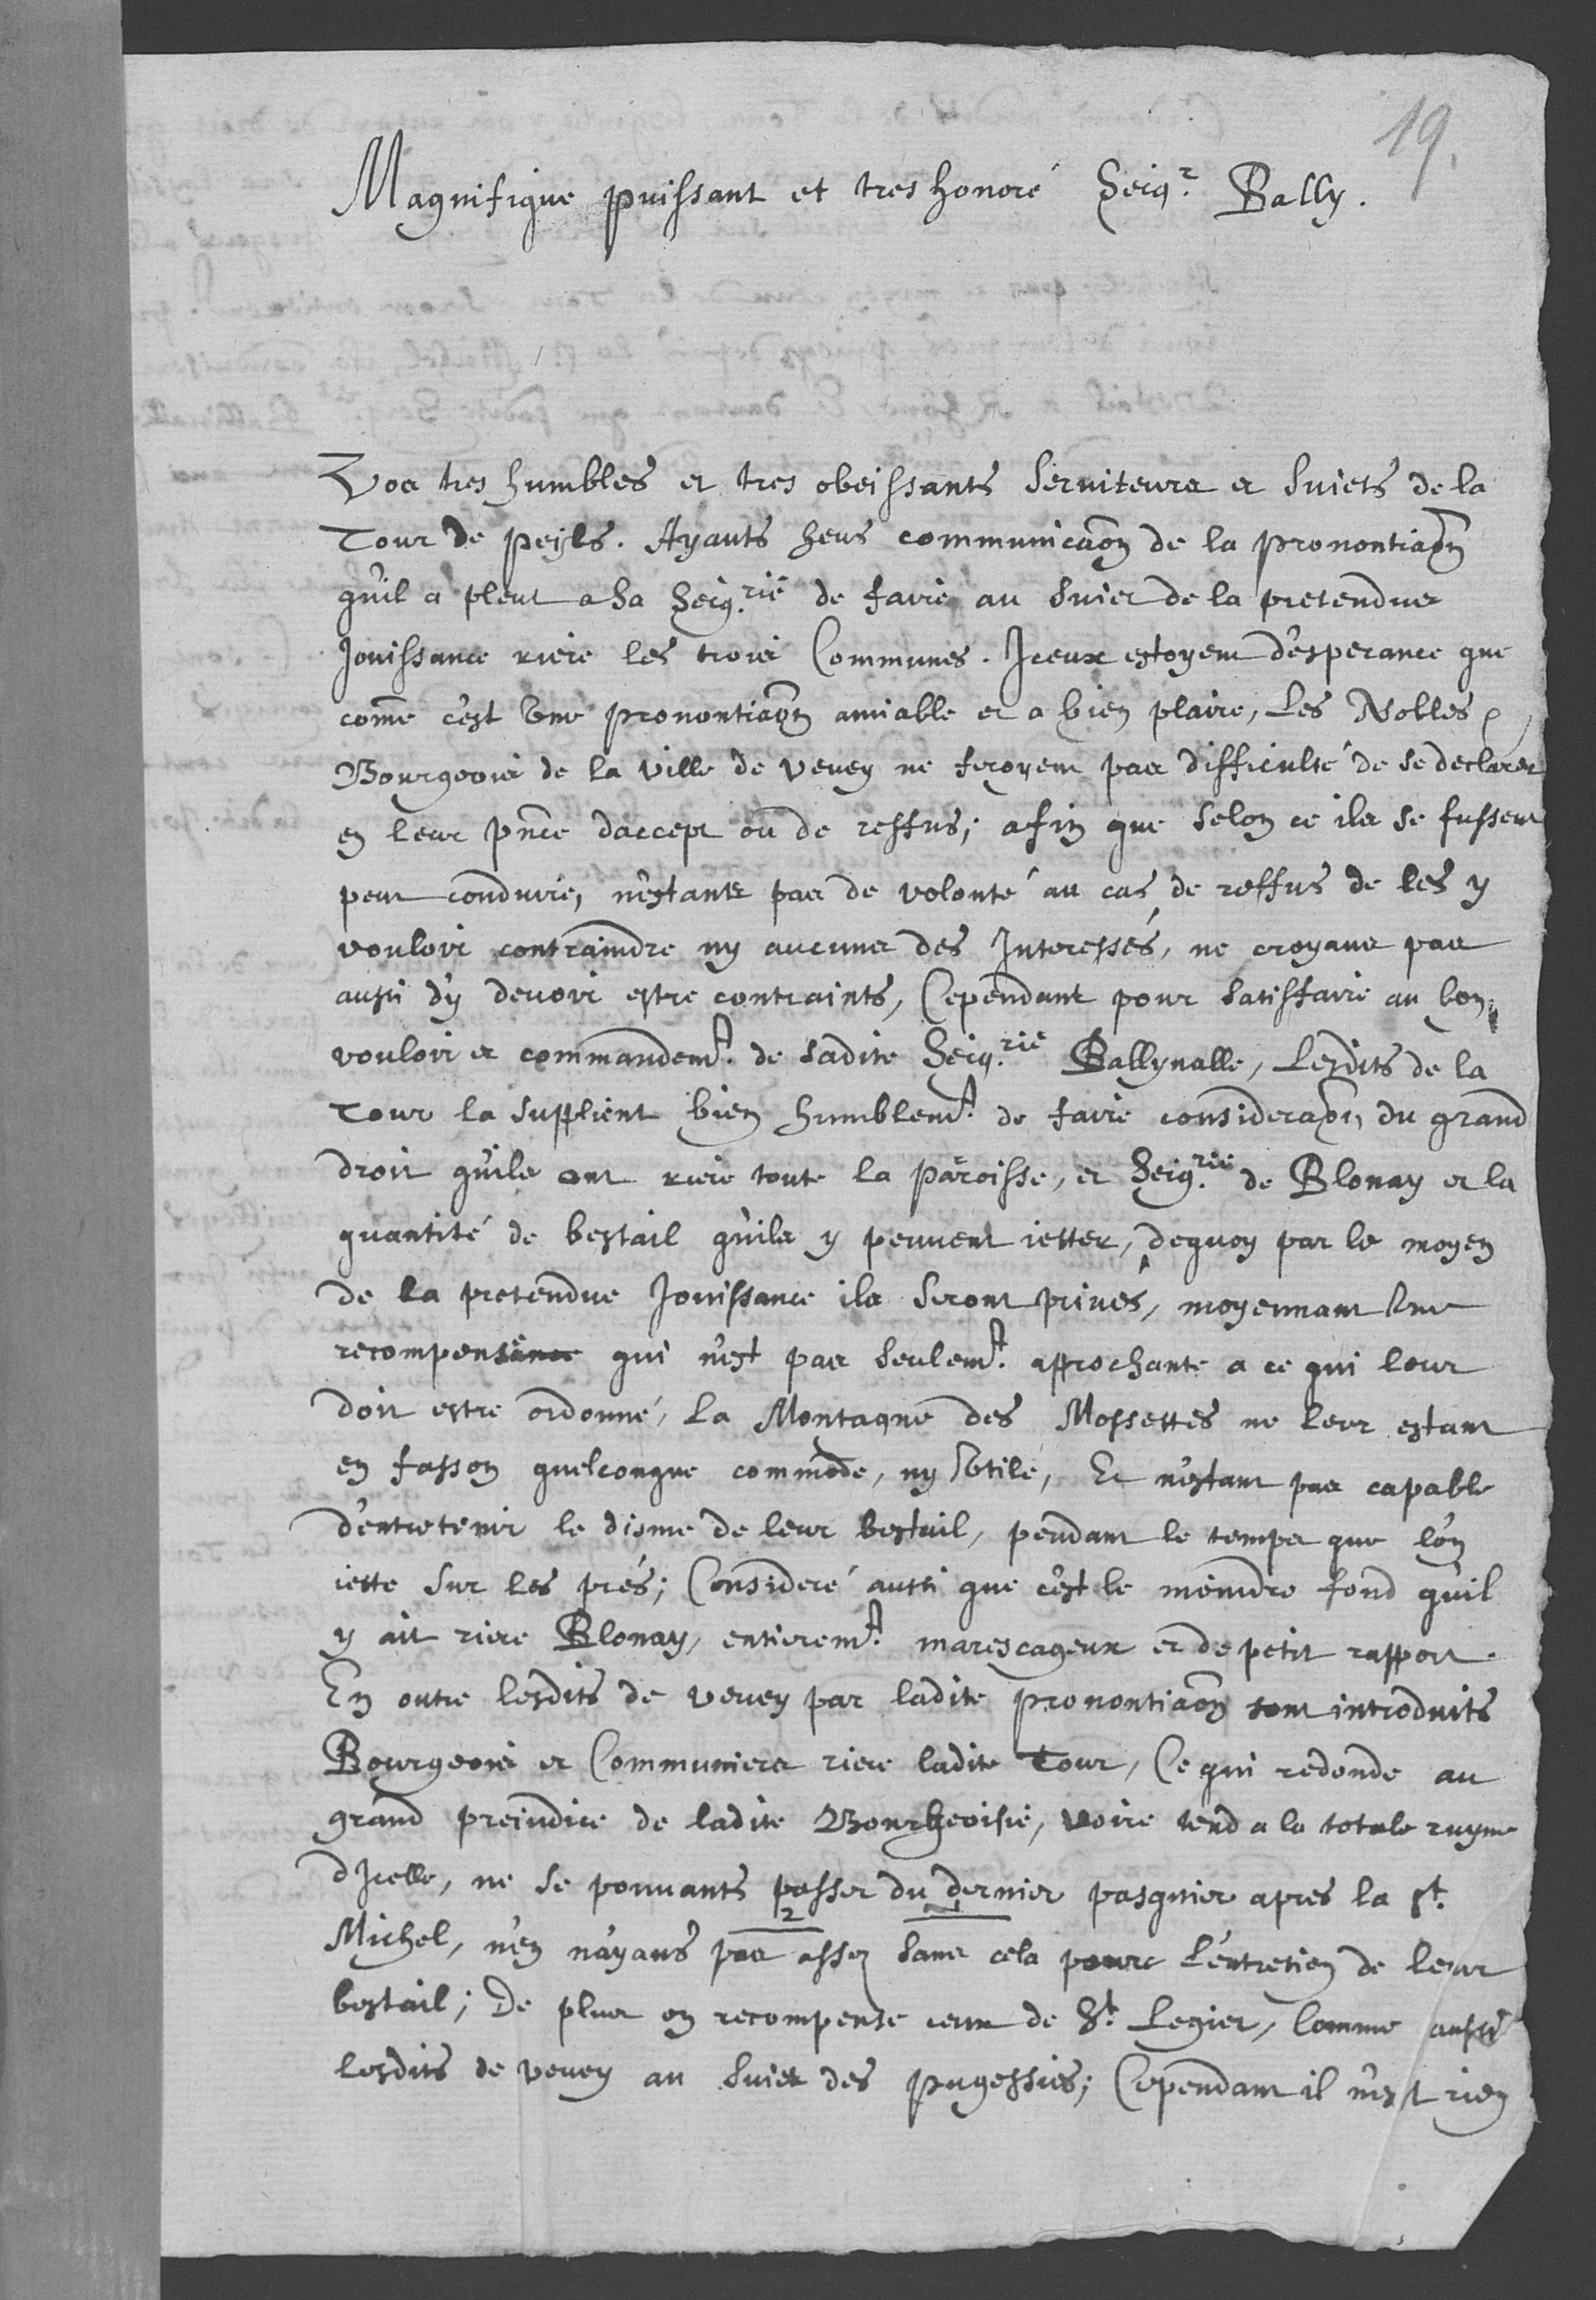 19.
Magnifique puissant et tres honoré Seigr. Bally.
Vos tres humbles et tres obeissants seruiteurs et suiets de la
Tour de Peylz. Ayants heus communicaon de la pronontiaon
qu'il a pleut a Sa Seig.rie de faire au suiet de la pretendue
Jouissance riere les trois Communes. Iceux estoyent d'esperance que
come c'est une pronontiaon amiable et a bien plaire, les Nobles
Bourgeois de la ville de Veuey ne feroyent pas difficulté de se declarer
en leur pnce d'accept ou de reffus; afin que selon ce ils se fussent
peut conduire, n'estants pas de volonté au cas de reffus de les y
vouloir contraindre ny aucuns des Interessés, ne croyans pas
aussi d'y deuoir estre contraints, Cependant pour satisfaire au bon
vouloir et commandemt. de sadite Seig.rie Ballyualle, Lesdits de la
Tour la supplient bien humblemt. de faire consideraon du grand
droit qu'ils ont riere toute la paroisse, et Seig.rie de Blonay et la
quantité de bestail qu'ils y peuuent ietter, dequoy par le moyen
de la pretendue Jouissance ils seront priués, moyennant une
recompense qui n'est pas seulemt. approchante a ce qui leur
doit estre ordonné, la Montagne des Mossettes ne leur estant
en fasson quelconque commode, ny utile, Et n'estant pas capable
d'entretenir le disme de leur bestail, pendant le temps que l'on
iette sur les prés; Consideré aussi que c'est le moindre fond qu'il
y ait riere Blonay, entieremt. marescageux et de petit rapport.
En outre lesdits de Veuey par ladite pronontiaon sont introduits
Bourgeois et Communiers riere ladite Tour, Ce qui redonde au
grand preiudice de ladite Bourgeoisie, voire tend a la totale ruyne
d'Icelle, ne se pouuants passer du dernier pasquier apres la St.
Michel, n'en n'ayans pas assez sans cela pour l'entretien de leur
bestail; De plus on recompense ceux de St. Legier, Comme aussi
lesdits de Veuey au suiet des pugessies; Cependant il n'est rien